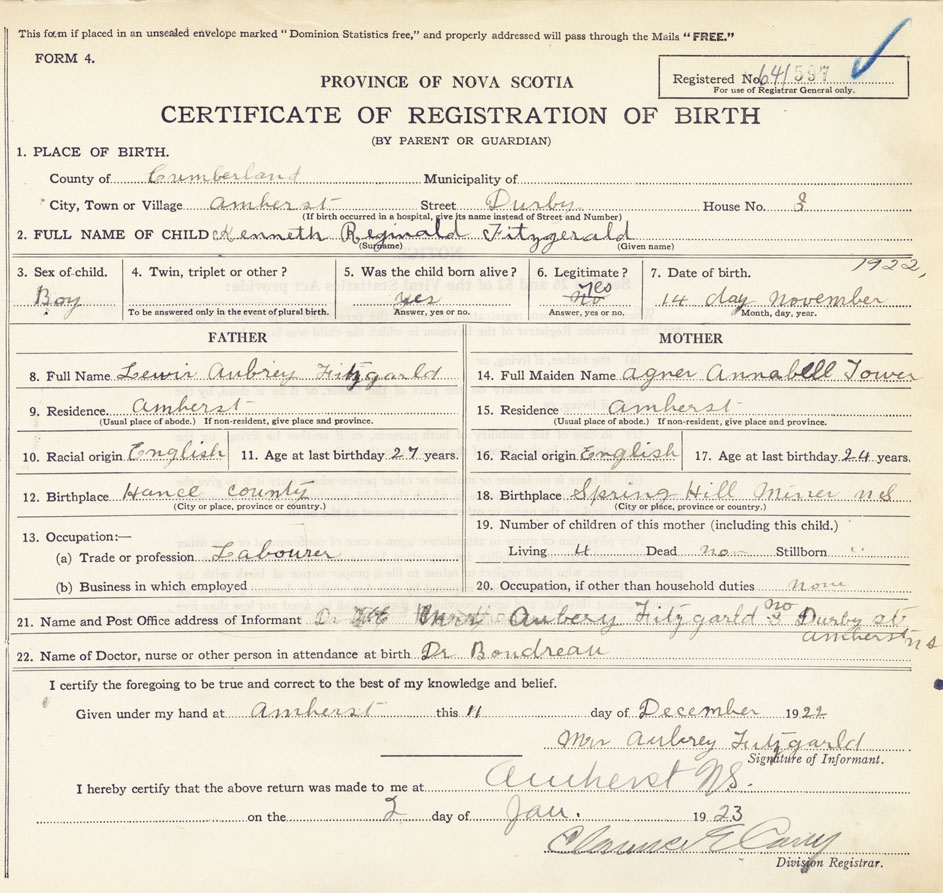 This form if placed in an unsealed envelope marked "Dominion Statistics free," and properly addressed will pass through the Mails "FREE."
FORM 4.
Registered No. 641597
For use of Registrar General only.
PROVINCE OF NOVA SCOTIA
CERTIFICATE OF REGISTRATION OF BIRTH
(BY PARENT OR GUARDIAN)
1. PLACE OF BIRTH.
County of Cumberland Municipality of
City, Town or Village Amherst Street Durby House No. 3
(If birth occurred in a hospital, give its name instead of Street and Number)
2. FULL NAME OF CHILD Kenneth Reginald Fitzgerald
(Surname) (Given name)
3. Sex of child. 4. Twin, triplet or other? 5. Was the child born alive? 6. Legitimate? 7. Date of birth. 1922,
Boy yes yes No 14 day November
To be answered only in the event of plural birth. Answer, yes or no. Answer, yes or no. Month, day, year.
FATHER MOTHER
8. Full Name Lewis Aubrey Fitzgarld 14. Full Maiden Name Agner Annabell Tower
9. Residence. Amherst 15. Residence amherst
(Usual place of abode.) If non-resident, give place and province. (Usual place of abode.) If non-resident, give place and province.
10. Racial origin English 11. Age at last birthday 27 years. 16. Racial origin English 17. Age at last birthday 24 years.
12. Birthplace Hance County 18. Birthplace Spring Hill Miner NS
(City or place, province or country.) (City or place, province or country.)
13. Occupation:— 19. Number of children of this mother (including this child.)
(a) Trade or profession Labourer Living 4 Dead non Stillborn "
(b) Business in which employed 20. Occupation, if other than household duties none
21. Name and Post Office address of Informant Aubery Fitzgarld no 3 Durby st
amherst n s
22. Name of Doctor, nurse or other person in attendance at birth Dr Boudreau
I certify the foregoing to be true and correct to the best of my knowledge and belief.
Given under my hand at Amherst this 11 day of December 1922
Mrs Aubrey Fitzgarld
Signature of Informant.
I hereby certify that the above return was made to me at Amherst NS.
on the 2 day of Jan. 1923
Clarence E Casey
Division Registrar.